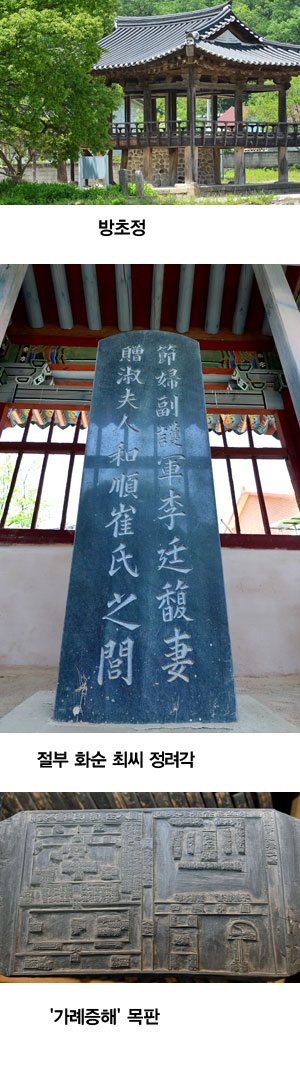 방초정
節婦副護軍李廷馥妻
贈淑夫人和順崔氏之閭
절부 화순 최씨 정려각
'가례증해' 목판